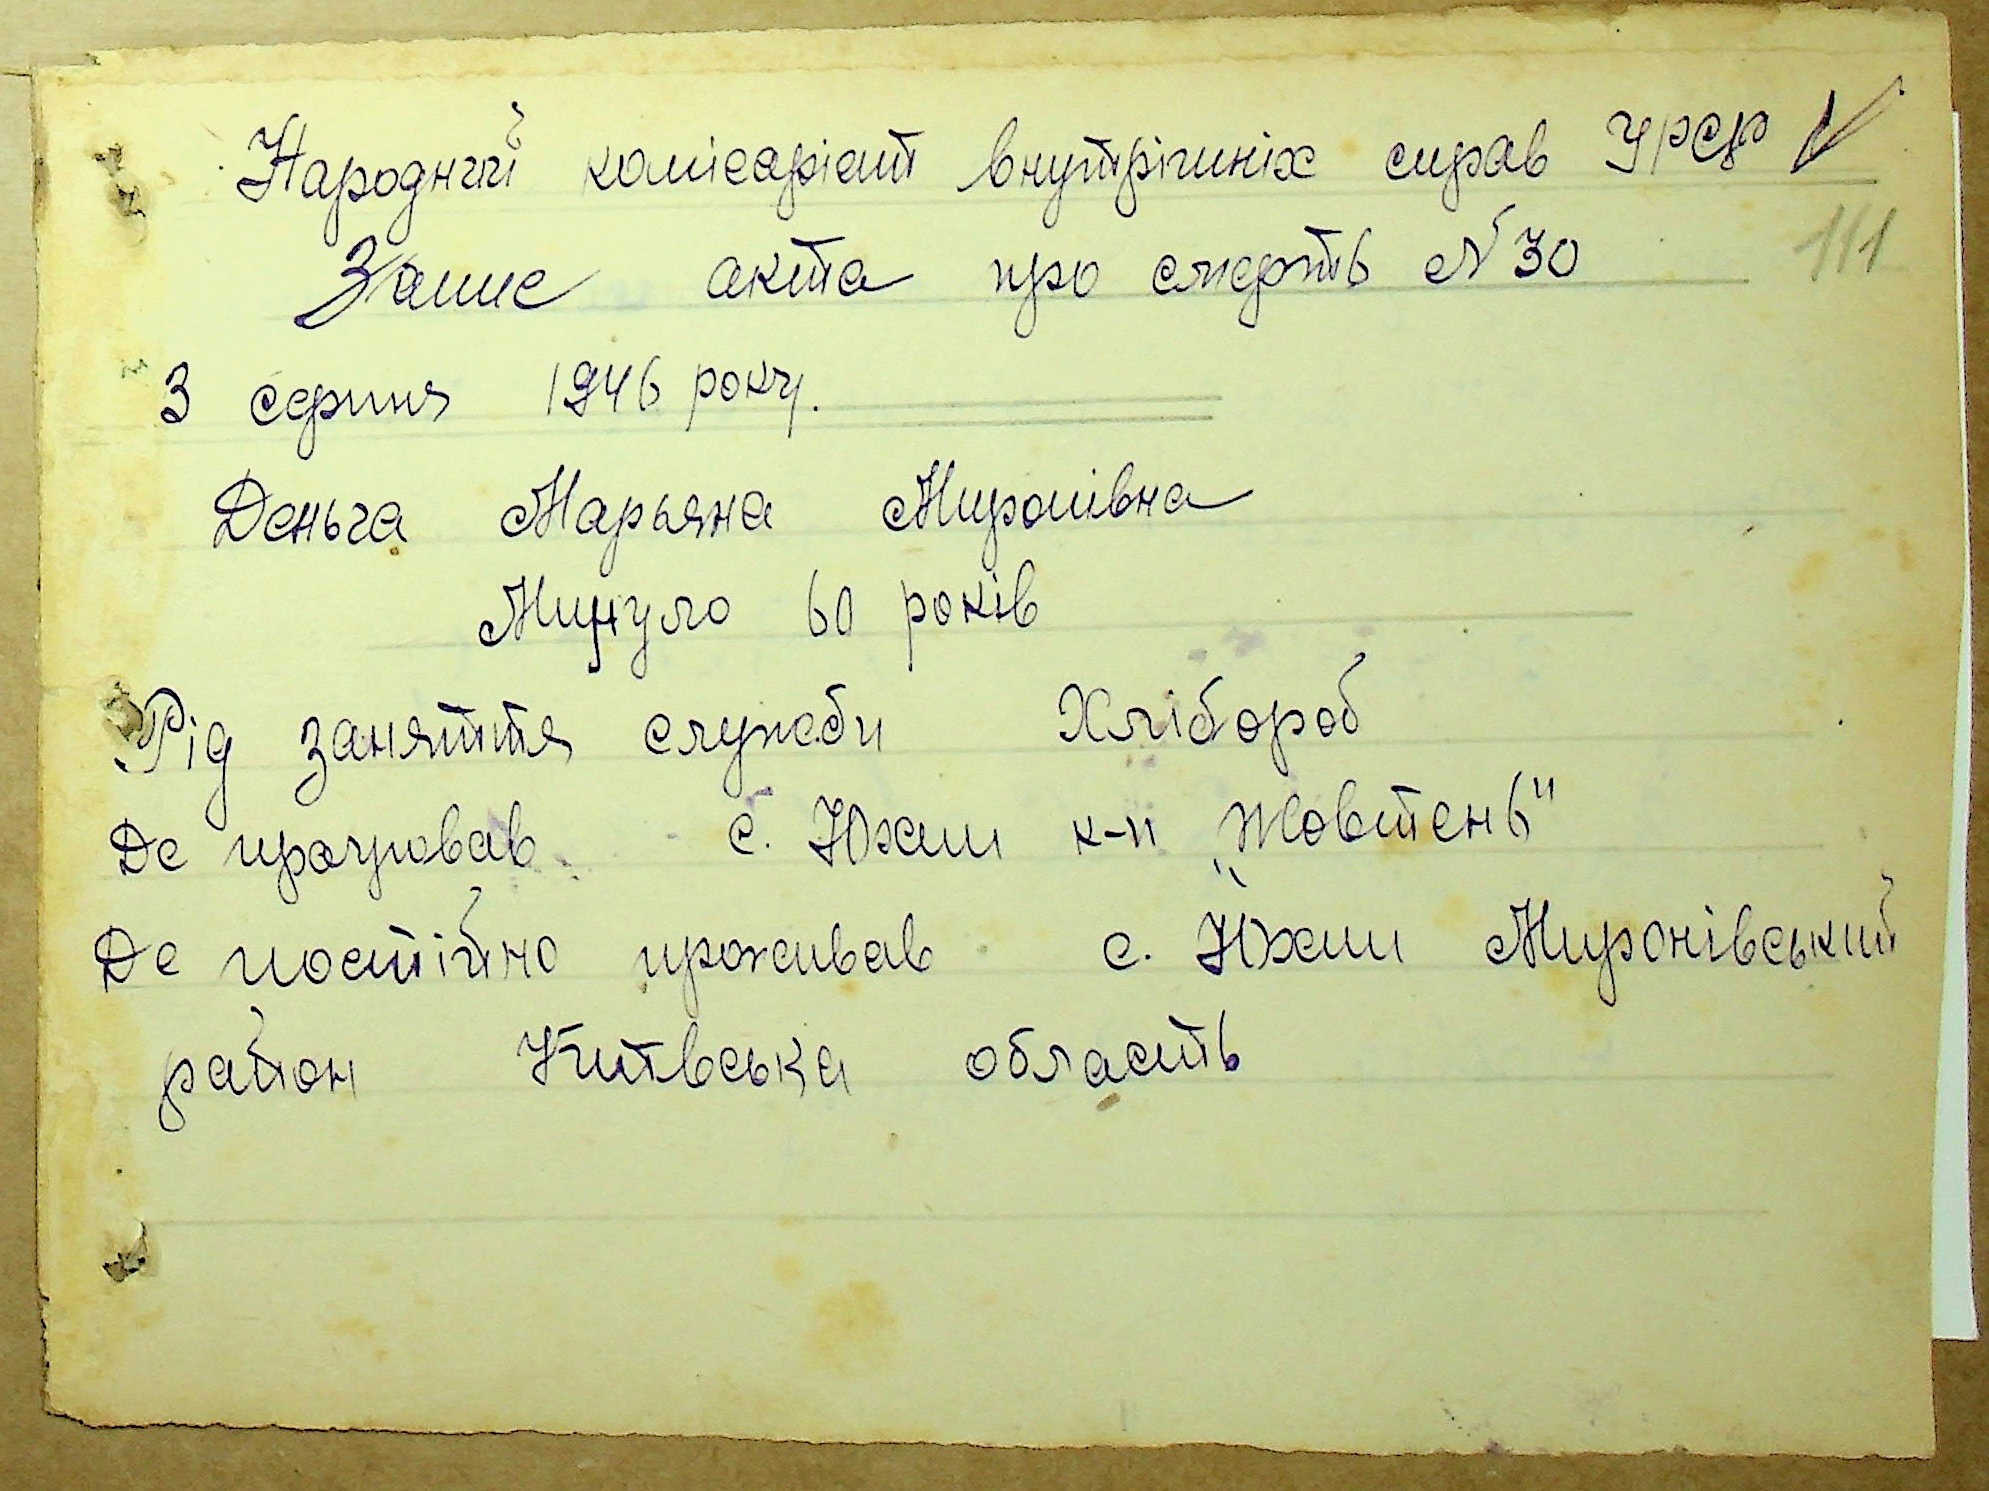 Народний комісаріат внутрішніх справ УРСР
111
Запис акта про смерть № 30
3 серпня 1946 року.
Деньга Марьяна Миронівна
Минуло 60 років
Рід заняття служби Хлібороб
Де працював с. Юхни к-п „Жовтень"
Де постійно проживав с. Юхни Миронівський
район Київська область